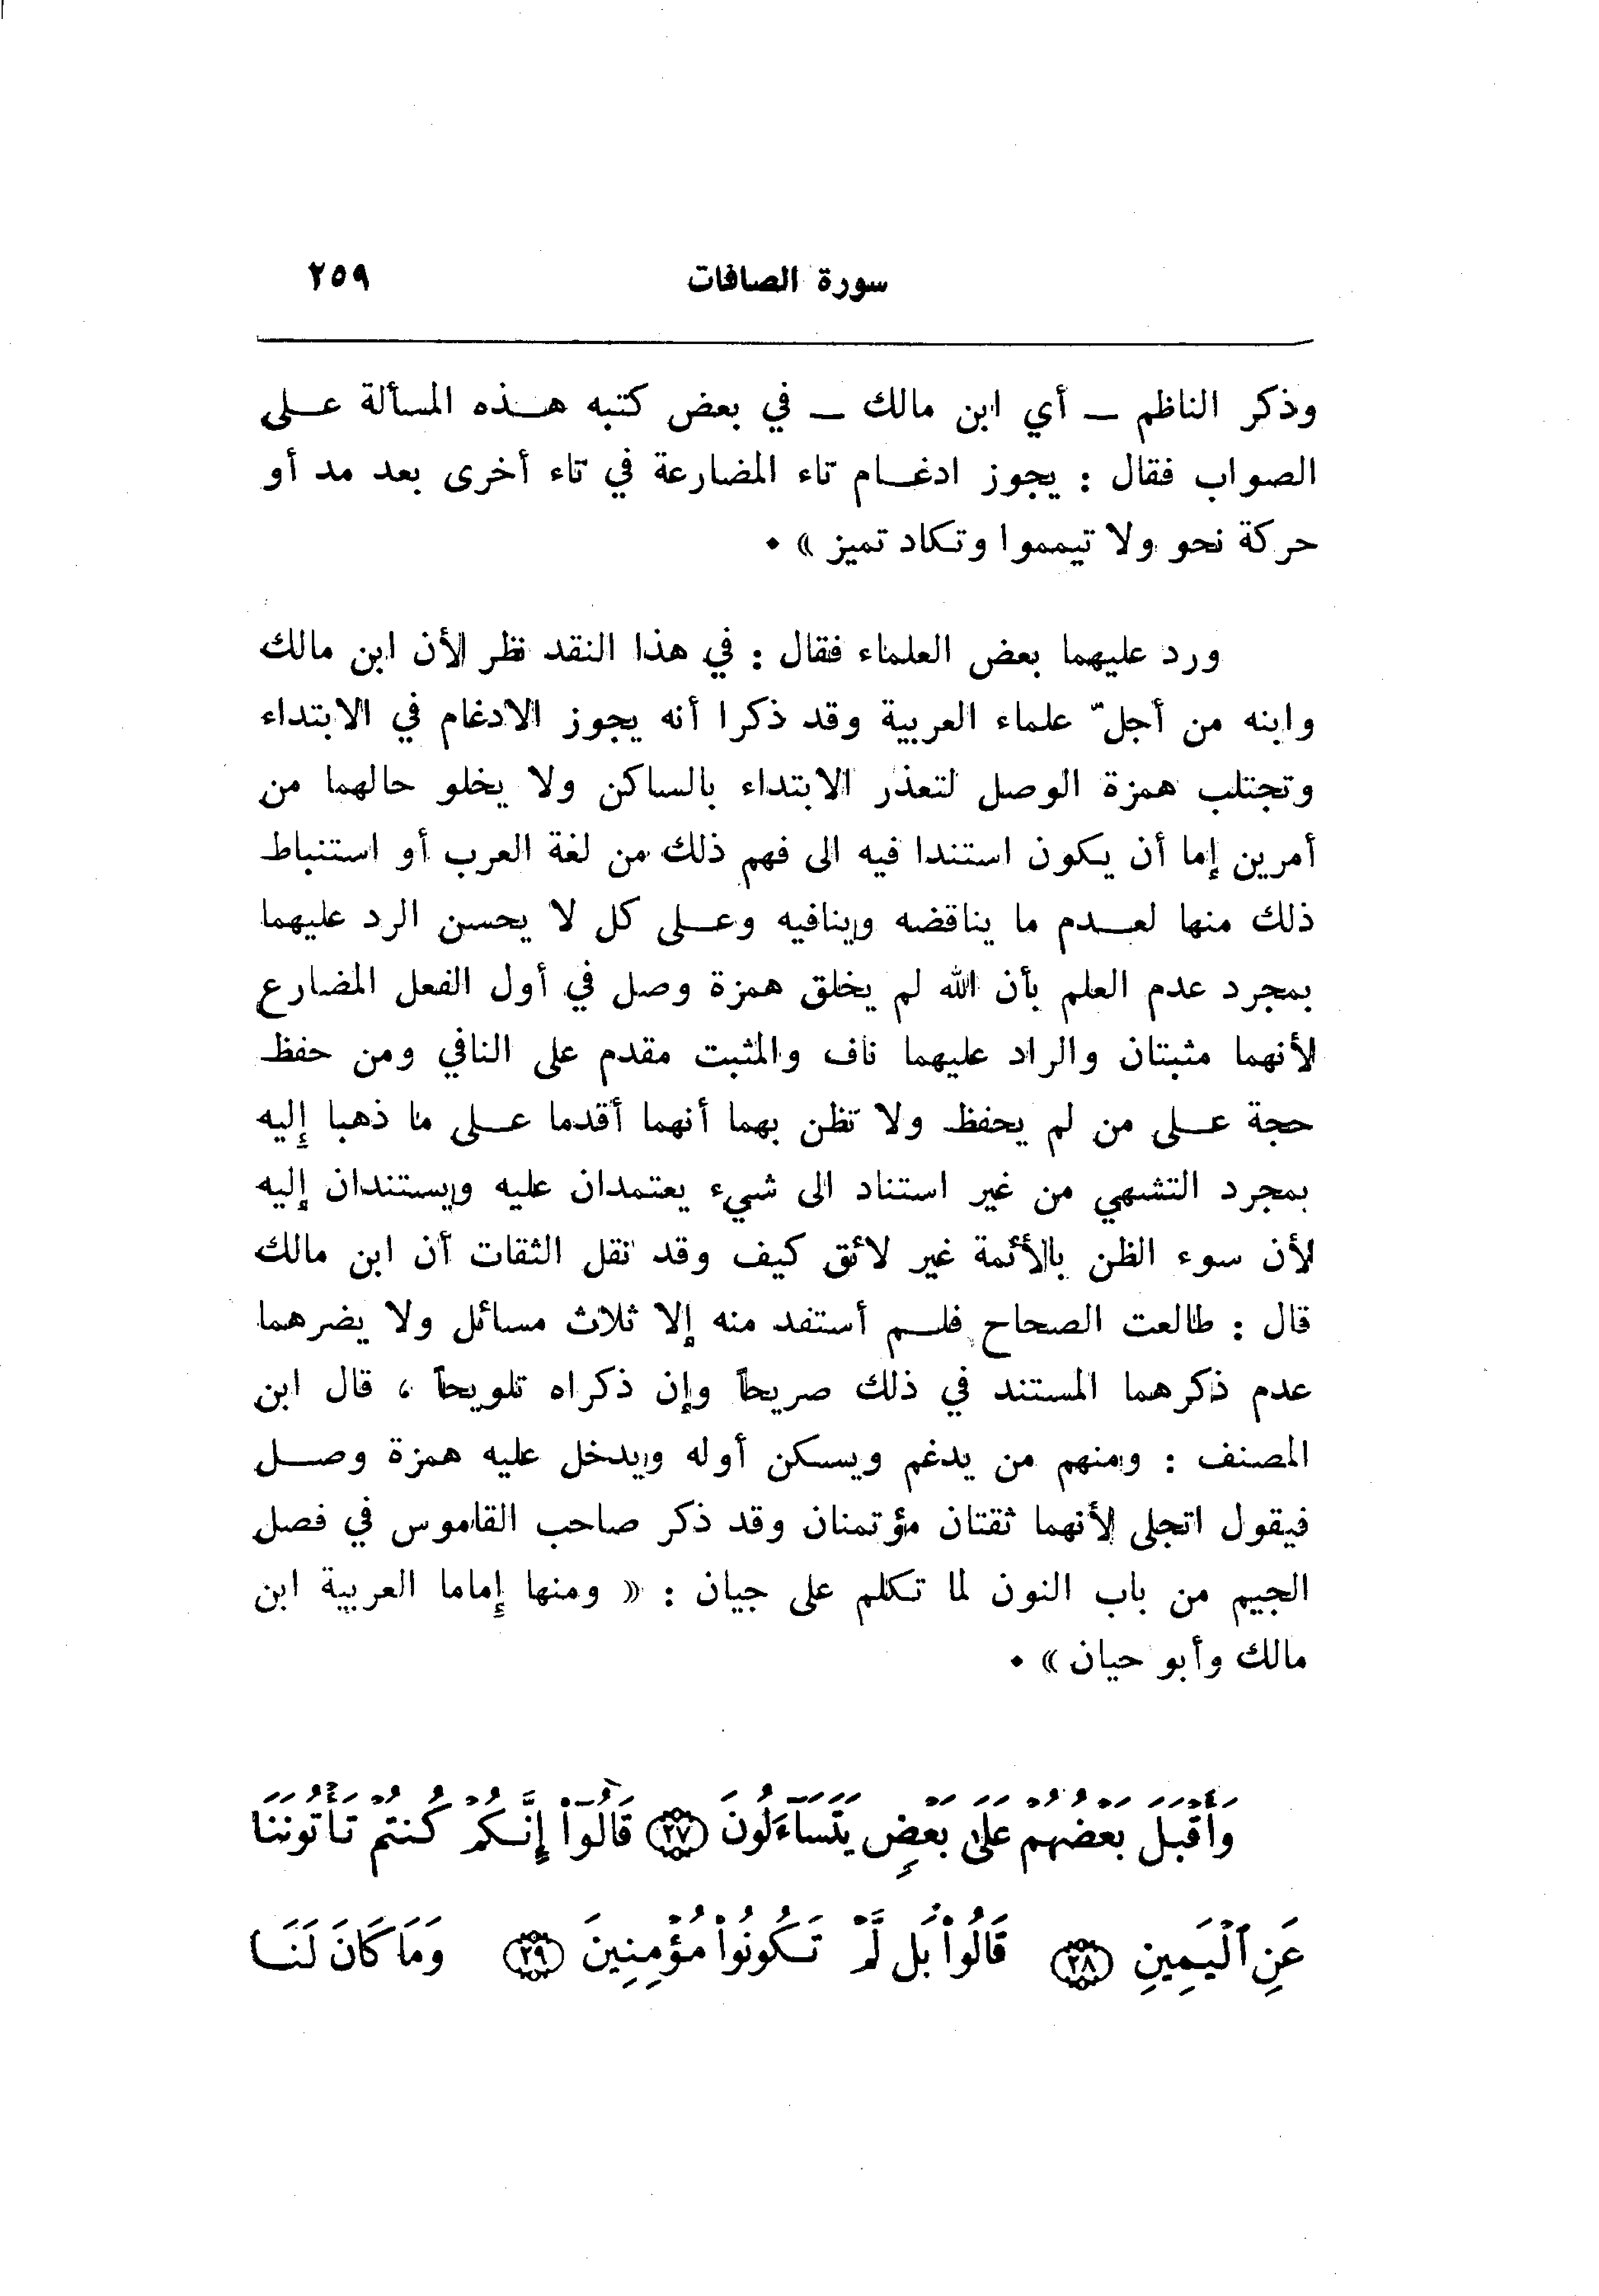 سورة الصافات ٢٥٩
وذكر الناظم – أي ابن مالك – في بعض كتبه هذه المسألة على
الصواب فقال : يجوز ادغام تاء المضارعة في تاء أخرى بعد مد أو
حركة نحو ولا تيمموا وتكاد تميز » .
ورد عليهما بعض العلماء فقال : في هذا النقد نظر لأن ابن مالك
وابنه من أجلّ علماء العربية وقد ذكرا أنه يجوز الادغام في الابتداء
وتجتلب همزة الوصل لتعذر الابتداء بالساكن ولا يخلو حالهما من
أمرين إما أن يكون استندا فيه الى فهم ذلك من لغة العرب أو استنباط
ذلك منها لعدم ما يناقضه وينافيه وعلى كل لا يحسن الرد عليهما
بمجرد عدم العلم بأن الله لم يخلق همزة وصل في أول الفعل المضارع
لأنهما مثبتان والراد عليهما ناف والمثبت مقدم على النافي ومن حفظ
حجة على من لم يحفظ ولا تظن بهما أنهما أقدما على ما ذهبا إليه
بمجرد التشهي من غير استناد الى شيء يعتمدان عليه ويستندان إليه
لأن سوء الظن بالأئمة غير لائق كيف وقد نقل الثقات أن ابن مالك
قال : طالعت الصحاح فلم أستفد منه إلا ثلاث مسائل ولا يضرهما
عدم ذكرهما المستند في ذلك صريحاً وإن ذكراه تلويحاً ، قال ابن
المصنف : ومنهم من يدغم ويسكن أوله ويدخل عليه همزة وصل
فيقول اتجلى لأنهما ثقتان مؤتمنان وقد ذكر صاحب القاموس في فصل
الجيم من باب النون لما تكلم على جيان : « ومنها إماما العربية ابن
مالك وأبو حيان » .
وَأَقْبَلَ بَعْضُهُمْ عَلَىٰ بَعْضٍ يَتَسَآءَلُونَ ﴿٢٧﴾ قَالُوٓا۟ إِنَّكُمْ كُنتُمْ تَأْتُونَنَا
عَنِ ٱلْيَمِينِ ﴿٢٨﴾ قَالُوا۟ بَل لَّمْ تَكُونُوا۟ مُؤْمِنِينَ ﴿٢٩﴾ وَمَا كَانَ لَنَا